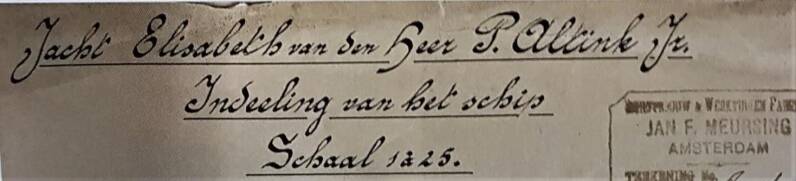 Jacht Elisabeth van den Heer P. Altink Jr.
Indeeling van het schip
Schaal 1à25.
SCHEEPSBOUW & WERKTUIGEN FABR
JAN F. MEURSING
AMSTERDAM
TEEKENING No.